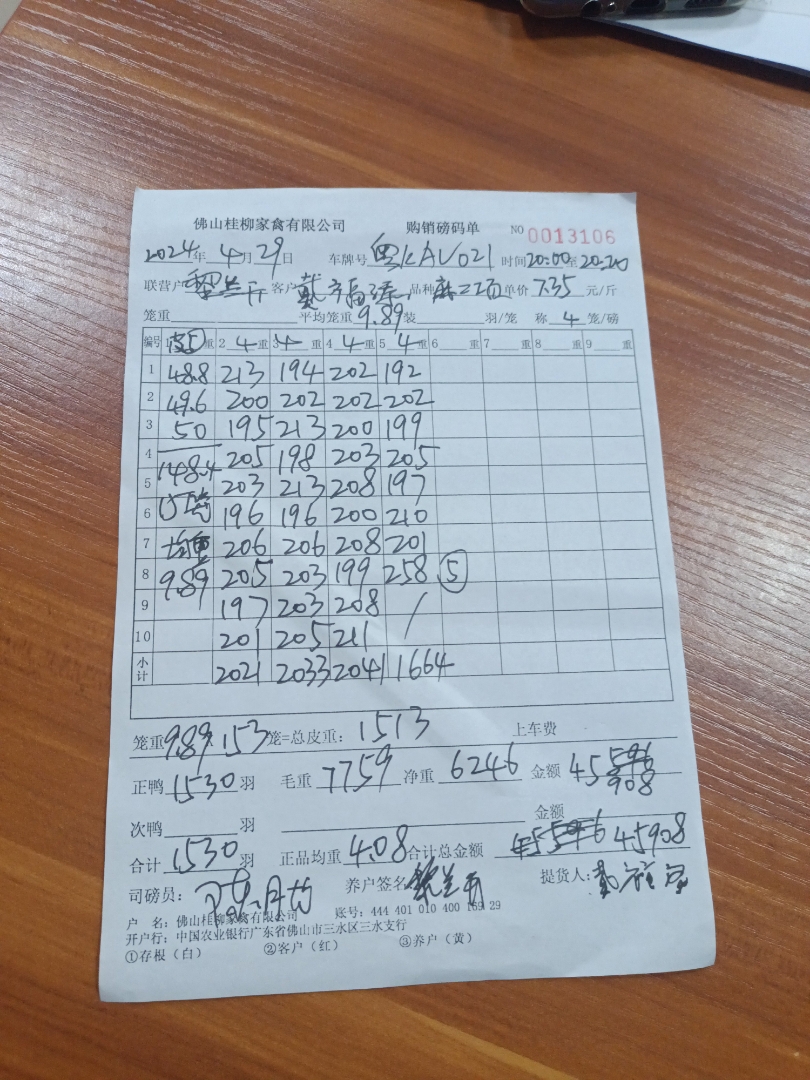 佛山桂柳家禽有限公司 购销磅码单 NO 0013106
2024年 4月29日 车牌号 粤KAV021 时间20:00至20:20
联营户 客户 品种 单价 7.35 元/斤
笼重 平均笼重 9.89 装 羽/笼 称 4 笼/磅
编号 1 重 2 4 重 3 4 重 4 4 重 5 4 重 6 重 7 重 8 重 9 重
1 48.8 213 194 202 192
2 49.6 200 202 202 202
3 50 195 213 200 199
4 148.4 205 198 203 205
5 203 213 208 197
6 196 196 200 210
7 均重 206 206 208 201
8 9.89 205 203 199 258 ⑤
9 197 203 208 /
10 201 205 211
小计 2021 2033 2041 1664
笼重 9.89 × 153 笼=总皮重: 1513 上车费
正鸭 1530 羽 毛重 7759 净重 6246 金额 45908
次鸭 羽 金额
合计 1530 羽 正品均重 4.08 合计总金额 45908
司磅员: 养户签名 提货人:
户 名: 佛山桂柳家禽有限公司 账号: 444 401 010 400 169 29
开户行: 中国农业银行广东省佛山市三水区三水支行
①存根(白) ②客户(红) ③养户(黄)